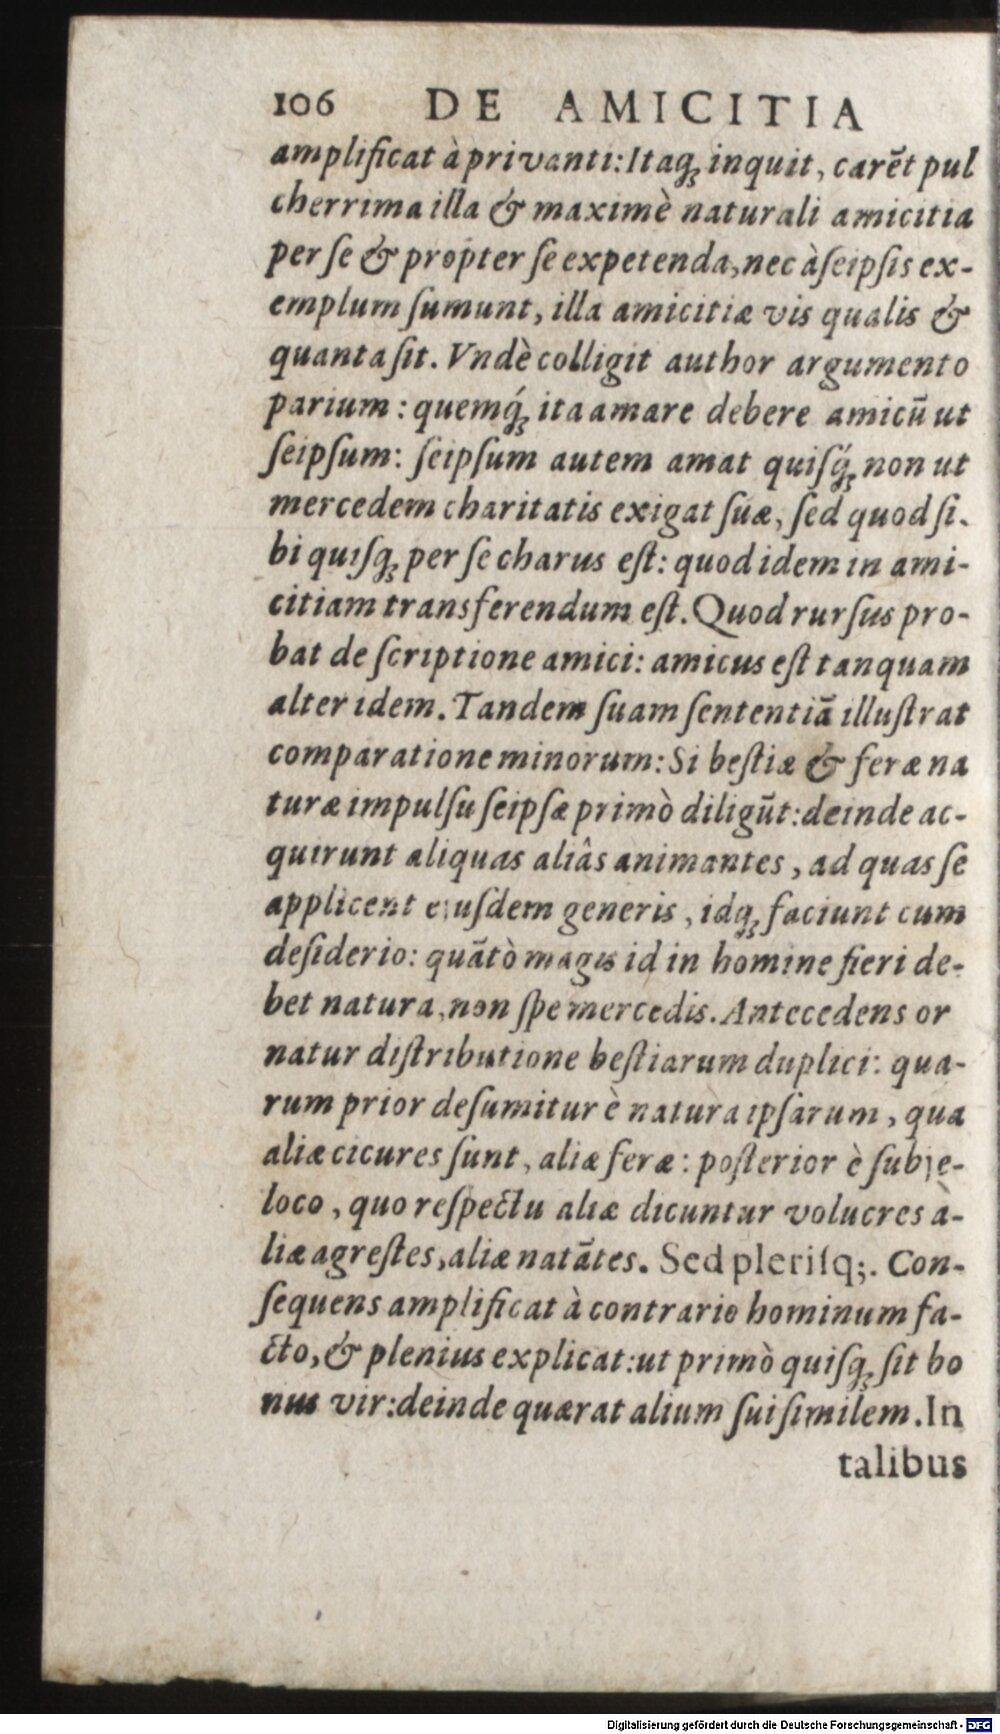 106 DE AMICITIA
amplificat à privanti: Itaq́ꝫ inquit, carēt pul
cherrima illa & maximè naturali amicitia
per ſe & propter ſe expetenda, nec à ſeipſis ex-
emplum ſumunt, illa amicitiæ vis qualis &
quanta ſit. Vndè colligit author argumento
parium: quemq́ꝫ ita amare debere amicū ut
ſeipſum: ſeipſum autem amat quiſq́ꝫ non ut
mercedem charitatis exigat ſuæ, ſed quod ſi-
bi quiſqꝫ per ſe charus eſt: quod idem in ami-
citiam transferendum eſt. Quod rurſus pro-
bat deſcriptione amici: amicus eſt tanquam
alter idem. Tandem ſuam ſententiā illuſtrat
comparatione minorum: Si beſtiæ & feræ na
turæ impulſu ſeipſæ primò diligūt: deinde ac-
quirunt aliquas aliâs animantes, ad quas ſe
applicent ejuſdem generis, idqꝫ faciunt cum
deſiderio: quātò magis id in homine fieri de-
bet natura, non ſpe mercedis. Antecedens or
natur diſtributione beſtiarum duplici: qua-
rum prior deſumitur è natura ipſarum, qua
aliæ cicures ſunt, aliæ feræ: poſterior è ſubje-
loco, quo reſpectu aliæ dicuntur volucres à-
liæ agreſtes, aliæ natātes. Sed pleriſq;. Con-
ſequens amplificat à contrario hominum fa-
cto, & plenius explicat: ut primò quiſqꝫ ſit bo
nus vir: deinde quærat alium ſui ſimilem. In
talibus
Digitalisierung gefördert durch die Deutsche Forschungsgemeinschaft - DFG